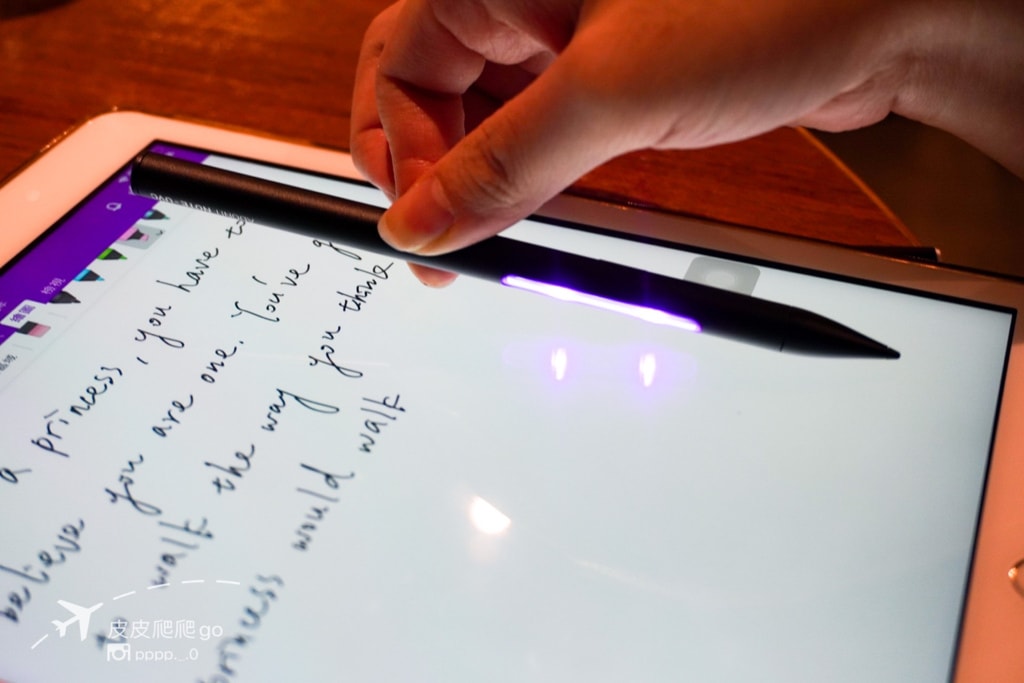 檢視
繪圖
a princess, you have to
believe you are one. You've g
to walk the way you think
princess would walk
皮皮爬爬go
pppp._.0